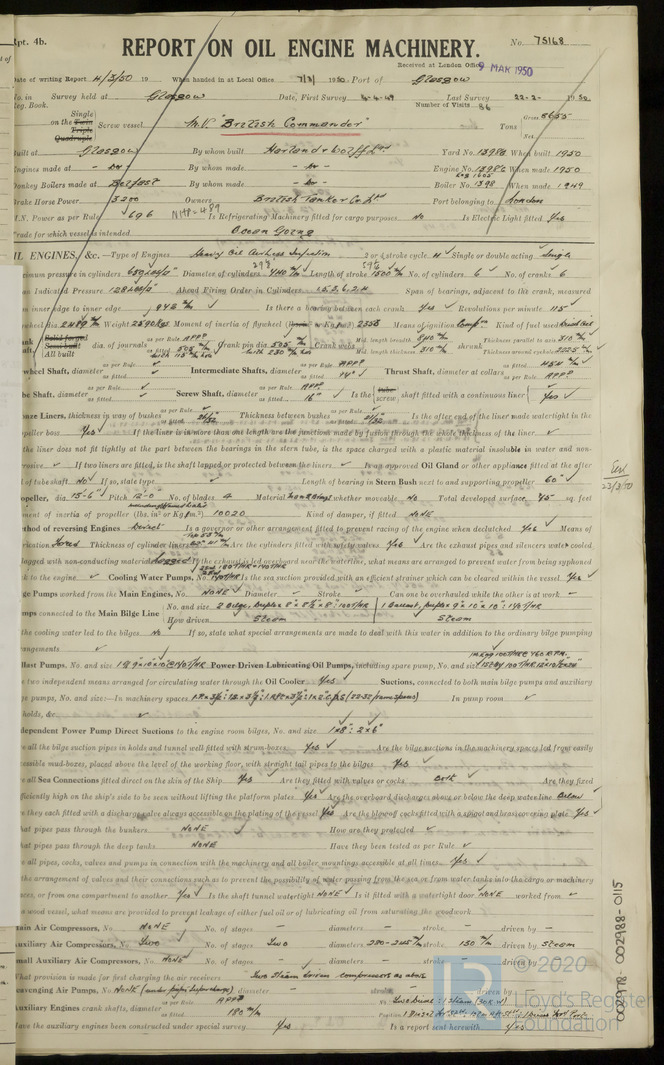 Rpt. 4b.
REPORT ON OIL ENGINE MACHINERY. No. 75168
Received at London Office 9 MAR 1950
Date of writing Report 4/3/50 19 When handed in at Local Office 7/3/ 1950. Port of Glasgow
No. in Survey held at Glasgow Date, First Survey 6-4-49 Last Survey 22-2- 1950
Reg. Book. Number of Visits 86
Single on the Twin Triple Quadruple Screw vessel M.V. "British Commander" Tons Gross 8655 Net
Built at Glasgow By whom built Harland & Wolff Ltd Yard No. 1398G When built 1950
Engines made at - do - By whom made - do - Engine No. 1398G When made 1950
Donkey Boilers made at Belfast By whom made - do - Boiler No. 1398 When made 1949
Brake Horse Power 3200 Owners British Tanker Co Ltd Port belonging to London
M.N. Power as per Rule 696 NHP = 489 Is Refrigerating Machinery fitted for cargo purposes No Is Electric Light fitted Yes
Trade for which vessel is intended Ocean Going
OIL ENGINES, &c.—Type of Engines Heavy Oil Airless Injection 2 or 4 stroke cycle 4 Single or double acting Single
Maximum pressure in cylinders Diameter of cylinders 740 m/m Length of stroke 1500 m/m No. of cylinders 6 No. of cranks 6
Mean Indicated Pressure Ahead Firing Order in Cylinders Span of bearings, adjacent to the crank, measured
from inner edge to inner edge 942 m/m Is there a bearing between each crank Yes Revolutions per minute 115
Flywheel dia. 2489 m/m Weight 2590 Kgs Moment of inertia of flywheel Means of ignition Comp. Kind of fuel used
dia. of journals as per Rule APPD as fitted 505 m/m Crank pin dia. 505 m/m Crank webs Mid. length breadth 940 m/m Mid. length thickness 310 m/m shrunk Thickness parallel to axis 310 m/m Thickness around eyehole
All built
Flywheel Shaft, diameter as per Rule as fitted Intermediate Shafts, diameter as per Rule APPD as fitted Thrust Shaft, diameter at collars as per Rule as fitted
Tube Shaft, diameter as per Rule as fitted Screw Shaft, diameter as per Rule APPD as fitted 16" Is the tube screw shaft fitted with a continuous liner Yes
Bronze Liners, thickness in way of bushes Thickness between bushes Is the after end of the liner made watertight in the
propeller boss Yes If the liner is in more than one length are the junctions made by fusion through the whole thickness of the liner
If the liner does not fit tightly at the part between the bearings in the stern tube, is the space charged with a plastic material insoluble in water and non-
corrosive If two liners are fitted, is the shaft lapped or protected between the liners Is an approved Oil Gland or other appliance fitted at the after
end of tube shaft No If so, state type Length of bearing in Stern Bush next to and supporting propeller 60"
Propeller, dia. 15'-6" Pitch 12'-0" No. of blades 4 Material whether moveable No Total developed surface 75 sq. feet
Moment of inertia of propeller (lbs. in.² or Kg. m.²) 10020 Kind of damper, if fitted NONE
Method of reversing Engines Direct Is a governor or other arrangement fitted to prevent racing of the engine when declutched Yes Means of
lubrication Forced Thickness of cylinder liners Are the cylinders fitted with safety valves Yes Are the exhaust pipes and silencers water cooled
or lagged with non-conducting material Lagged If the exhaust is led overboard near the waterline, what means are arranged to prevent water from being syphoned
back to the engine Cooling Water Pumps, No. Is the sea suction provided with an efficient strainer which can be cleared within the vessel Yes
Bilge Pumps worked from the Main Engines, No. NONE Diameter Stroke Can one be overhauled while the other is at work
Pumps connected to the Main Bilge Line No. and size 2 Bilge, Duplex 8" x 8½" x 8" 100T/HR 1 Ballast, Duplex 9" x 10" x 10" 140T/HR
How driven Steam Steam
Is the cooling water led to the bilges No If so, state what special arrangements are made to deal with this water in addition to the ordinary bilge pumping
arrangements
Ballast Pumps, No. and size Power Driven Lubricating Oil Pumps, including spare pump, No. and size
Are two independent means arranged for circulating water through the Oil Cooler Yes Suctions, connected to both main bilge pumps and auxiliary
bilge pumps, No. and size:—In machinery spaces In pump room
In holds, &c.
Independent Power Pump Direct Suctions to the engine room bilges, No. and size 1 x 8": 2 x 6"
Are all the bilge suction pipes in holds and tunnel well fitted with strum-boxes Yes Are the bilge suctions in the machinery spaces led from easily
accessible mud-boxes, placed above the level of the working floor, with straight tail pipes to the bilges Yes
Are all Sea Connections fitted direct on the skin of the Ship Yes Are they fitted with valves or cocks Both Are they fixed
sufficiently high on the ship's side to be seen without lifting the platform plates Yes Are the overboard discharges above or below the deep water line Below
Are they each fitted with a discharge valve always accessible on the plating of the vessel Yes Are the blow off cocks fitted with a spigot and brass covering plate Yes
What pipes pass through the bunkers NONE How are they protected
What pipes pass through the deep tanks NONE Have they been tested as per Rule
Are all pipes, cocks, valves and pumps in connection with the machinery and all boiler mountings accessible at all times Yes
Is the arrangement of valves and their connections such as to prevent the possibility of water passing from the sea or from water tanks into the cargo or machinery
spaces, or from one compartment to another Yes Is the shaft tunnel watertight NONE Is it fitted with a watertight door NONE worked from
If a wood vessel, what means are provided to prevent leakage of either fuel oil or of lubricating oil from saturating the woodwork
Main Air Compressors, No. NONE No. of stages diameters stroke driven by
Auxiliary Air Compressors, No. Two No. of stages Two diameters 280-245 m/m stroke 150 m/m driven by Steam
Small Auxiliary Air Compressors, No. NONE No. of stages diameters stroke driven by
What provision is made for first charging the air receivers Two Steam driven compressors as above
Scavenging Air Pumps, No. NONE (under piston supercharge) diameter stroke driven by
Auxiliary Engines crank shafts, diameter as per Rule APPD as fitted 180 m/m No. Position
Have the auxiliary engines been constructed under special survey Yes Is a report sent herewith Yes
22/3/50
002978-002988-0115
LR
© 2020
Lloyd's Register
Foundation